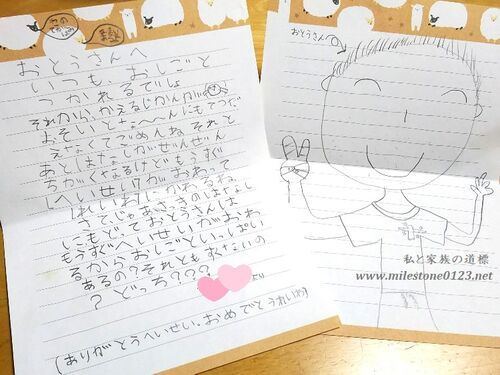 おとうさんへ
いつも、おしごと
つかれるでしょ
それから、かえるじかんが
おそいとな〜〜んにもてつだ
えなくてごめんねそれと
あとはなしがぜんぜん
ちがくなるけどもうすぐ
へいせいがおわって
れいわにかわるね、
さてじゃあさっきのはなし
にもどっておとうさんは
もうすぐへいせいがおわ
るからおしごといっぱい
あるの？それともすくないの
？どっち？？？
より
(ありがとうへいせい。おめでとうれいわ)
おとうさん
私と家族の道標
www.milestone0123.net